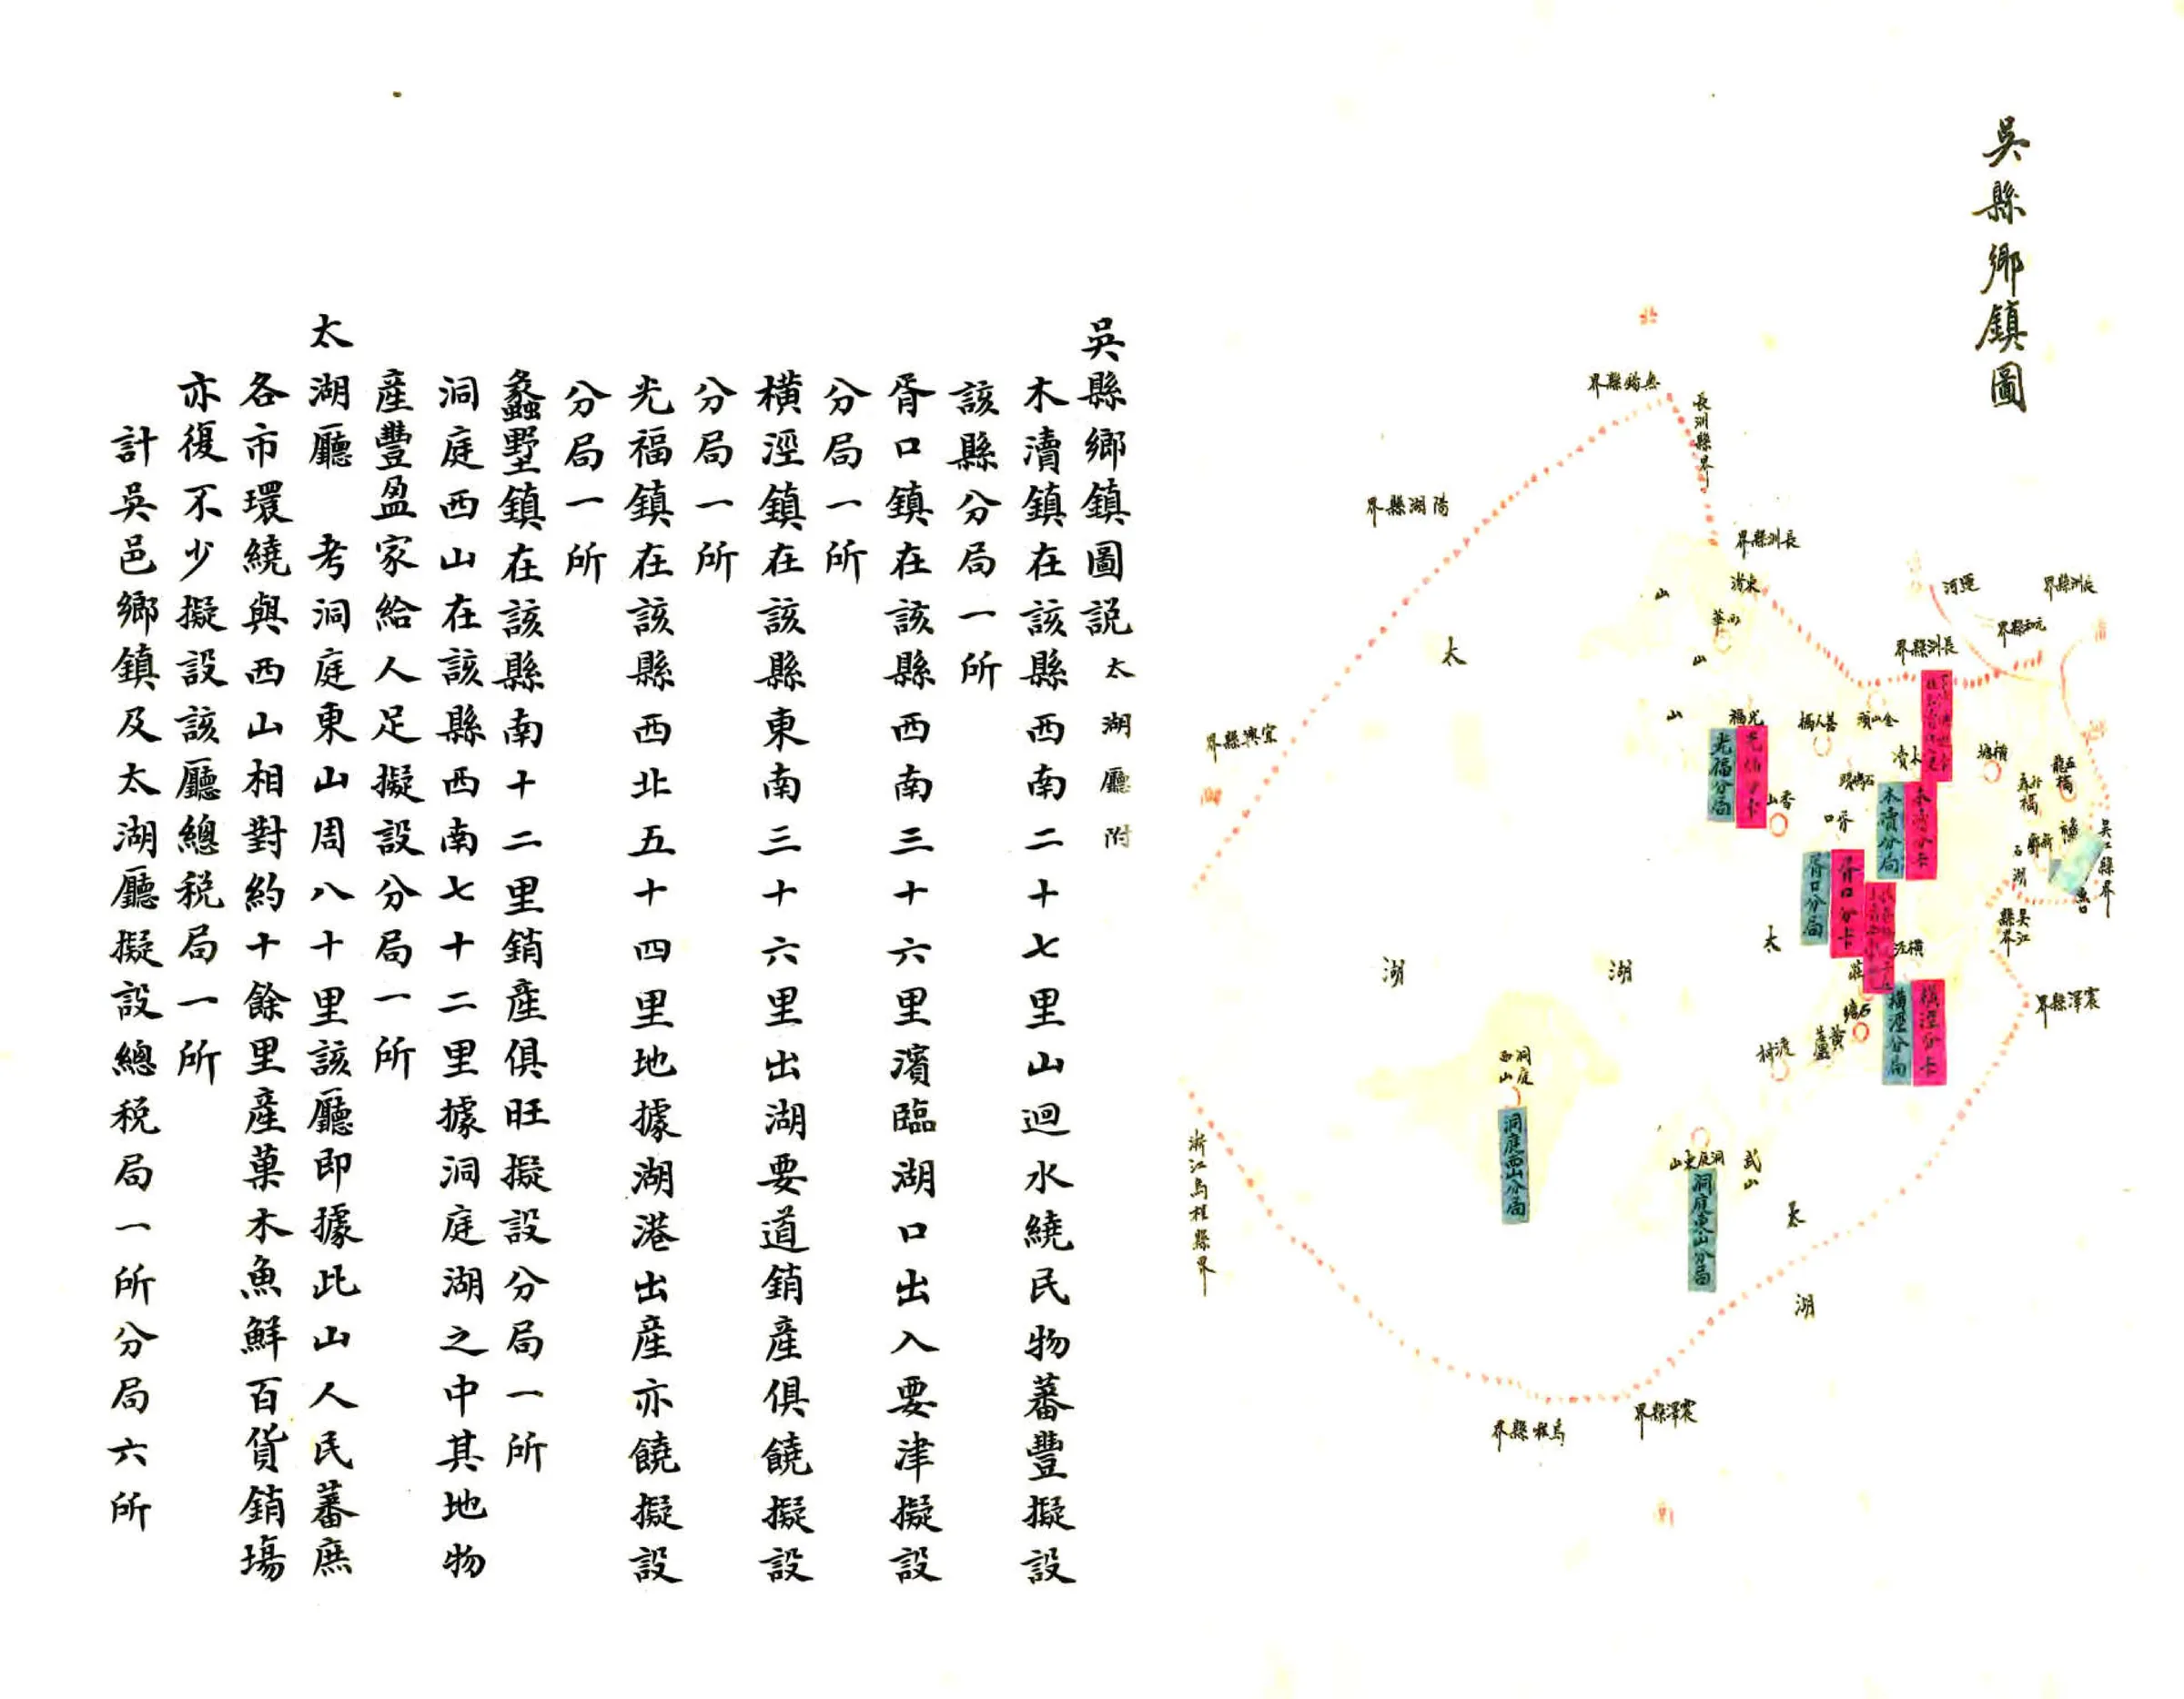 吳縣鄉鎮圖
北
無錫縣界
長洲縣界
陽湖縣界
長洲縣界
東渚
運河
長洲縣界
元和縣界
長洲縣界
山
西華
山
山
太
宜興縣界
光福
善人橋
金山頭
木瀆
橫塘
五龍橋
光福分局
光福分卡
香山
胥口
木瀆分局
木瀆分卡
吳江縣界
石湖
胥口分局
胥口分卡
吳江縣界
橫涇
太
湖
湖
莊
石塘
橫涇分局
橫涇分卡
震澤縣界
渡村
黃蘆
洞庭西山
洞庭西山分局
洞庭東山
武山
洞庭東山分局
太
湖
浙江烏程縣界
烏程縣界
震澤縣界
吳縣鄉鎮圖說 太湖廳附
木瀆鎮在該縣西南二十七里山迴水繞民物蕃豐擬設
該縣分局一所
胥口鎮在該縣西南三十六里濱臨湖口出入要津擬設
分局一所
橫涇鎮在該縣東南三十六里出湖要道銷產俱饒擬設
分局一所
光福鎮在該縣西北五十四里地據湖港出產亦饒擬設
分局一所
蠡墅鎮在該縣南十二里銷產俱旺擬設分局一所
洞庭西山在該縣西南七十二里據洞庭湖之中其地物
產豐盈家給人足擬設分局一所
太湖廳 考洞庭東山周八十里該廳即據此山人民蕃庶
各市環繞與西山相對約十餘里產菓木魚鮮百貨銷場
亦復不少擬設該廳總稅局一所
計吳邑鄉鎮及太湖廳擬設總稅局一所分局六所